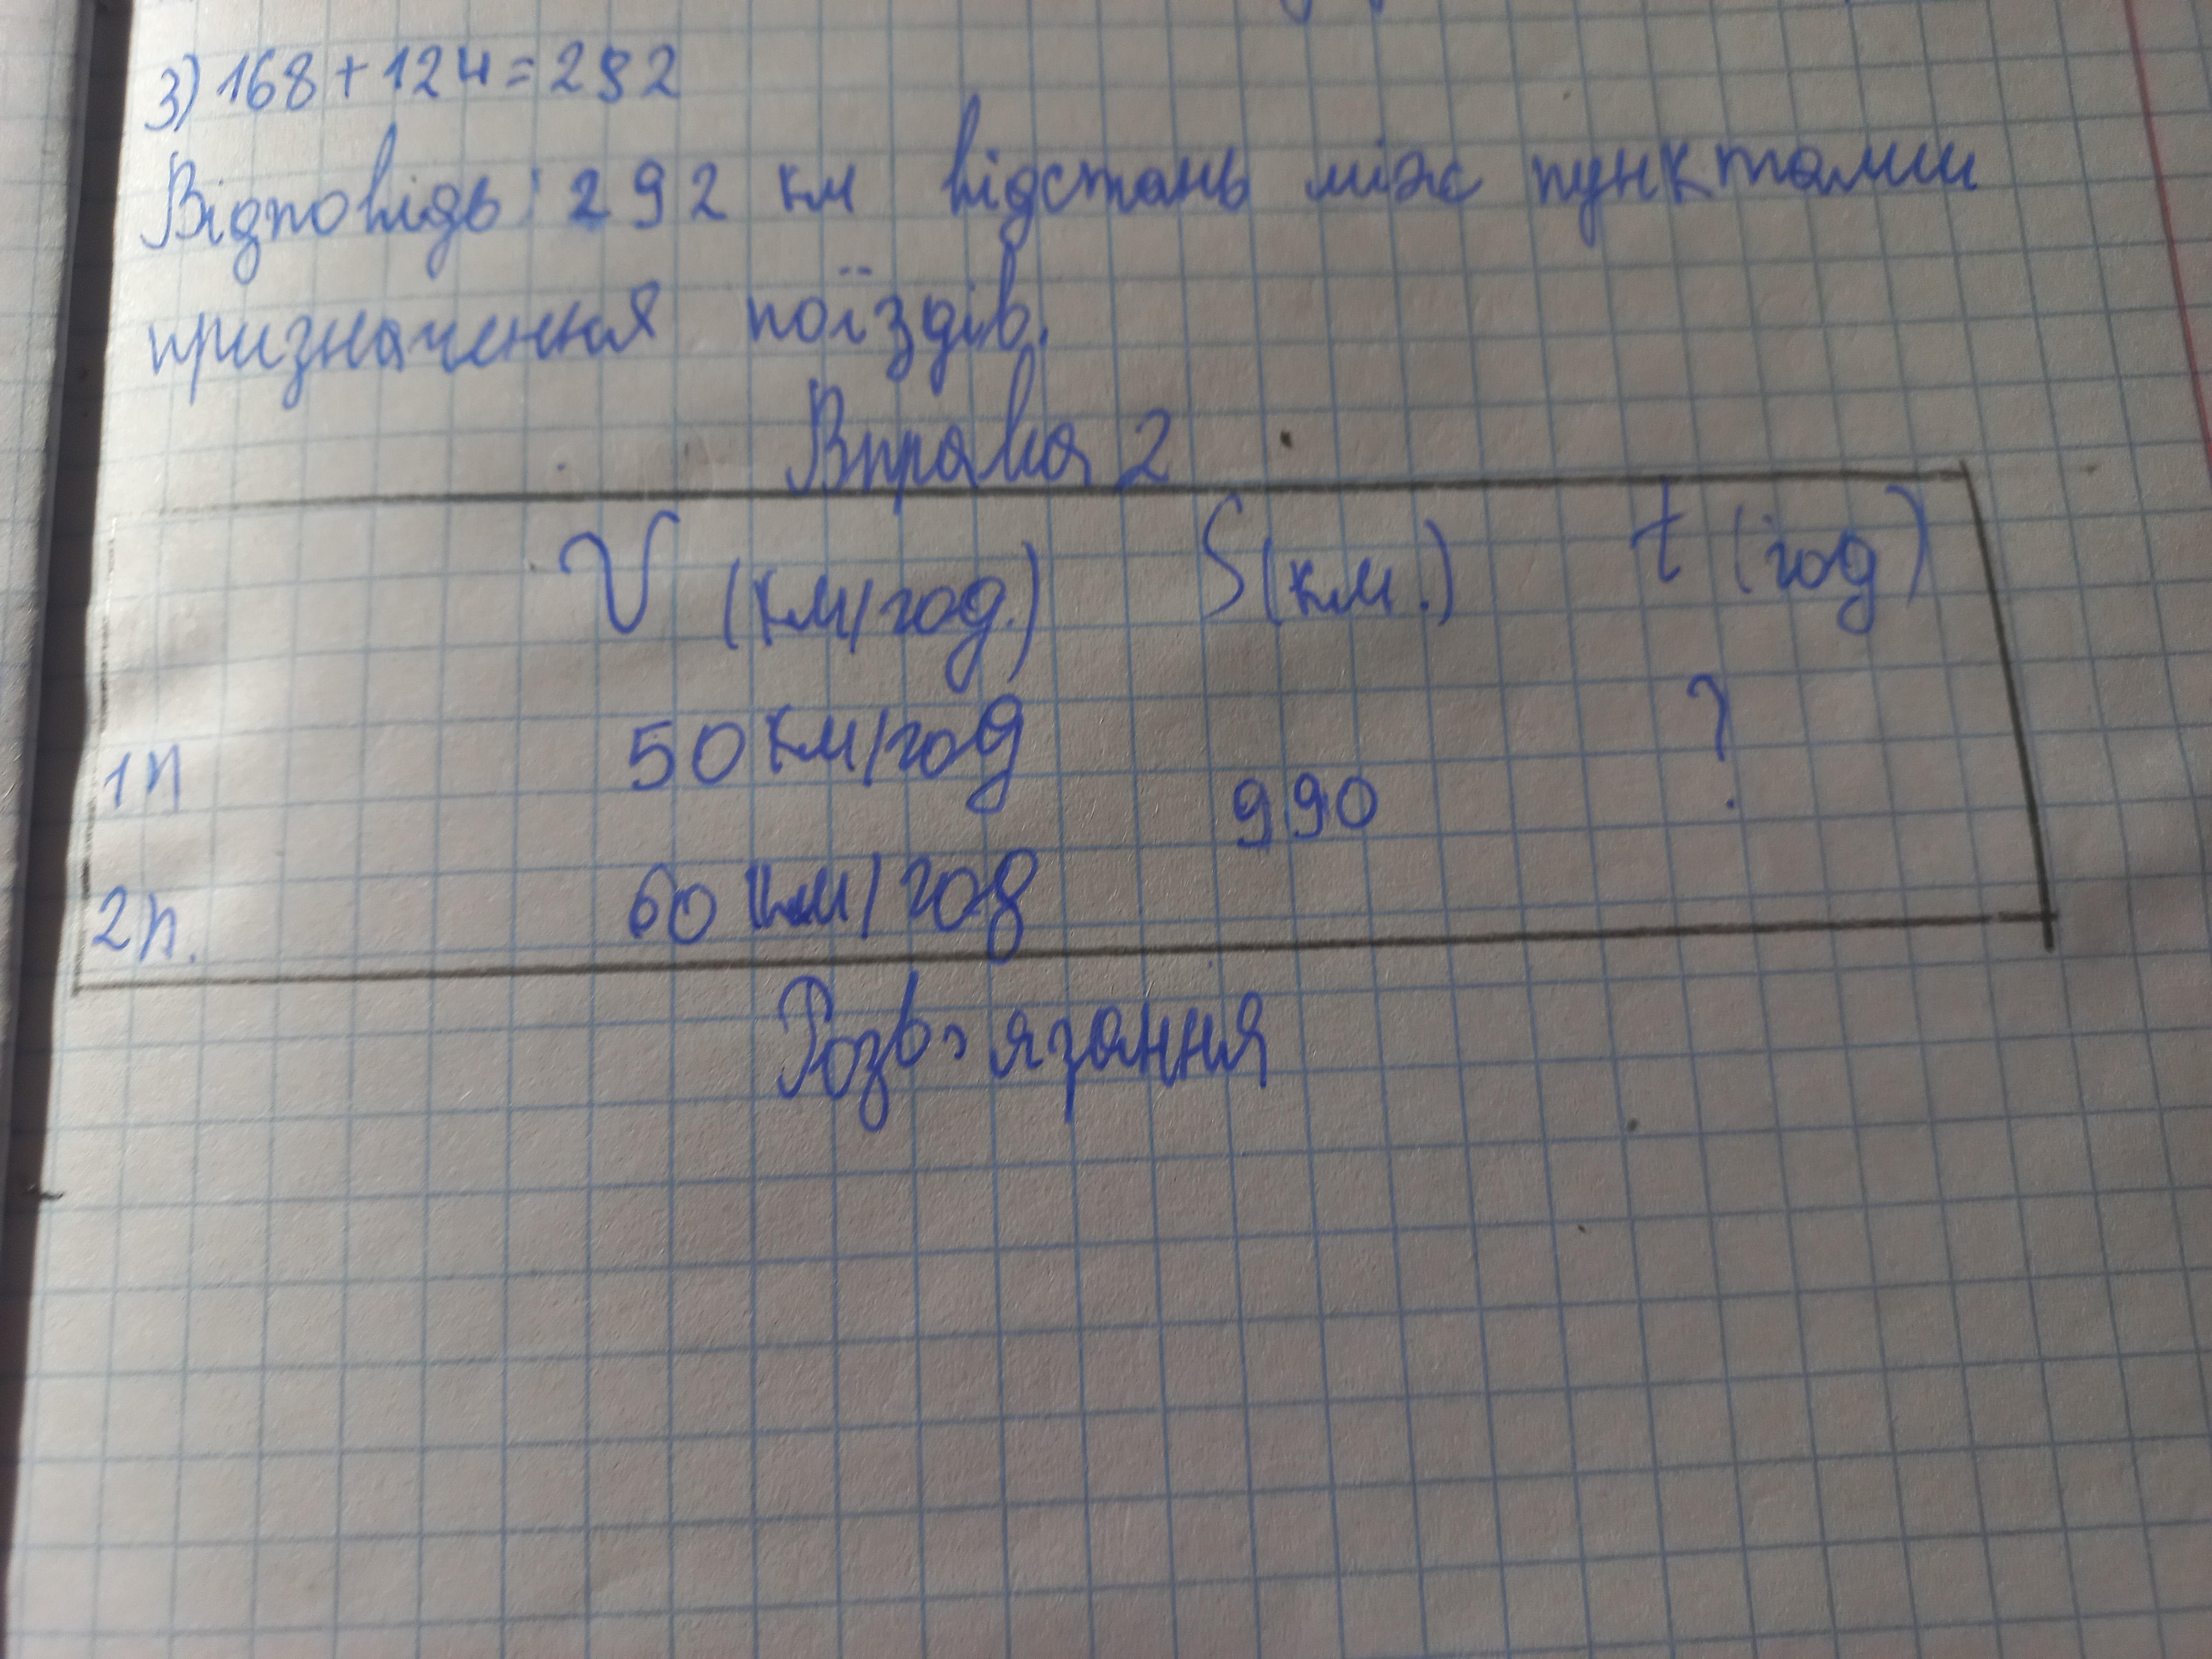 3) 168 + 124 = 292
Відповідь: 292 км відстань між пунктами
призначення поїздів.
Вправа 2
V (км/год.) S (км.) t (год)
1п 50 км/год ?
990
2п. 60 км/год
Розв'язання